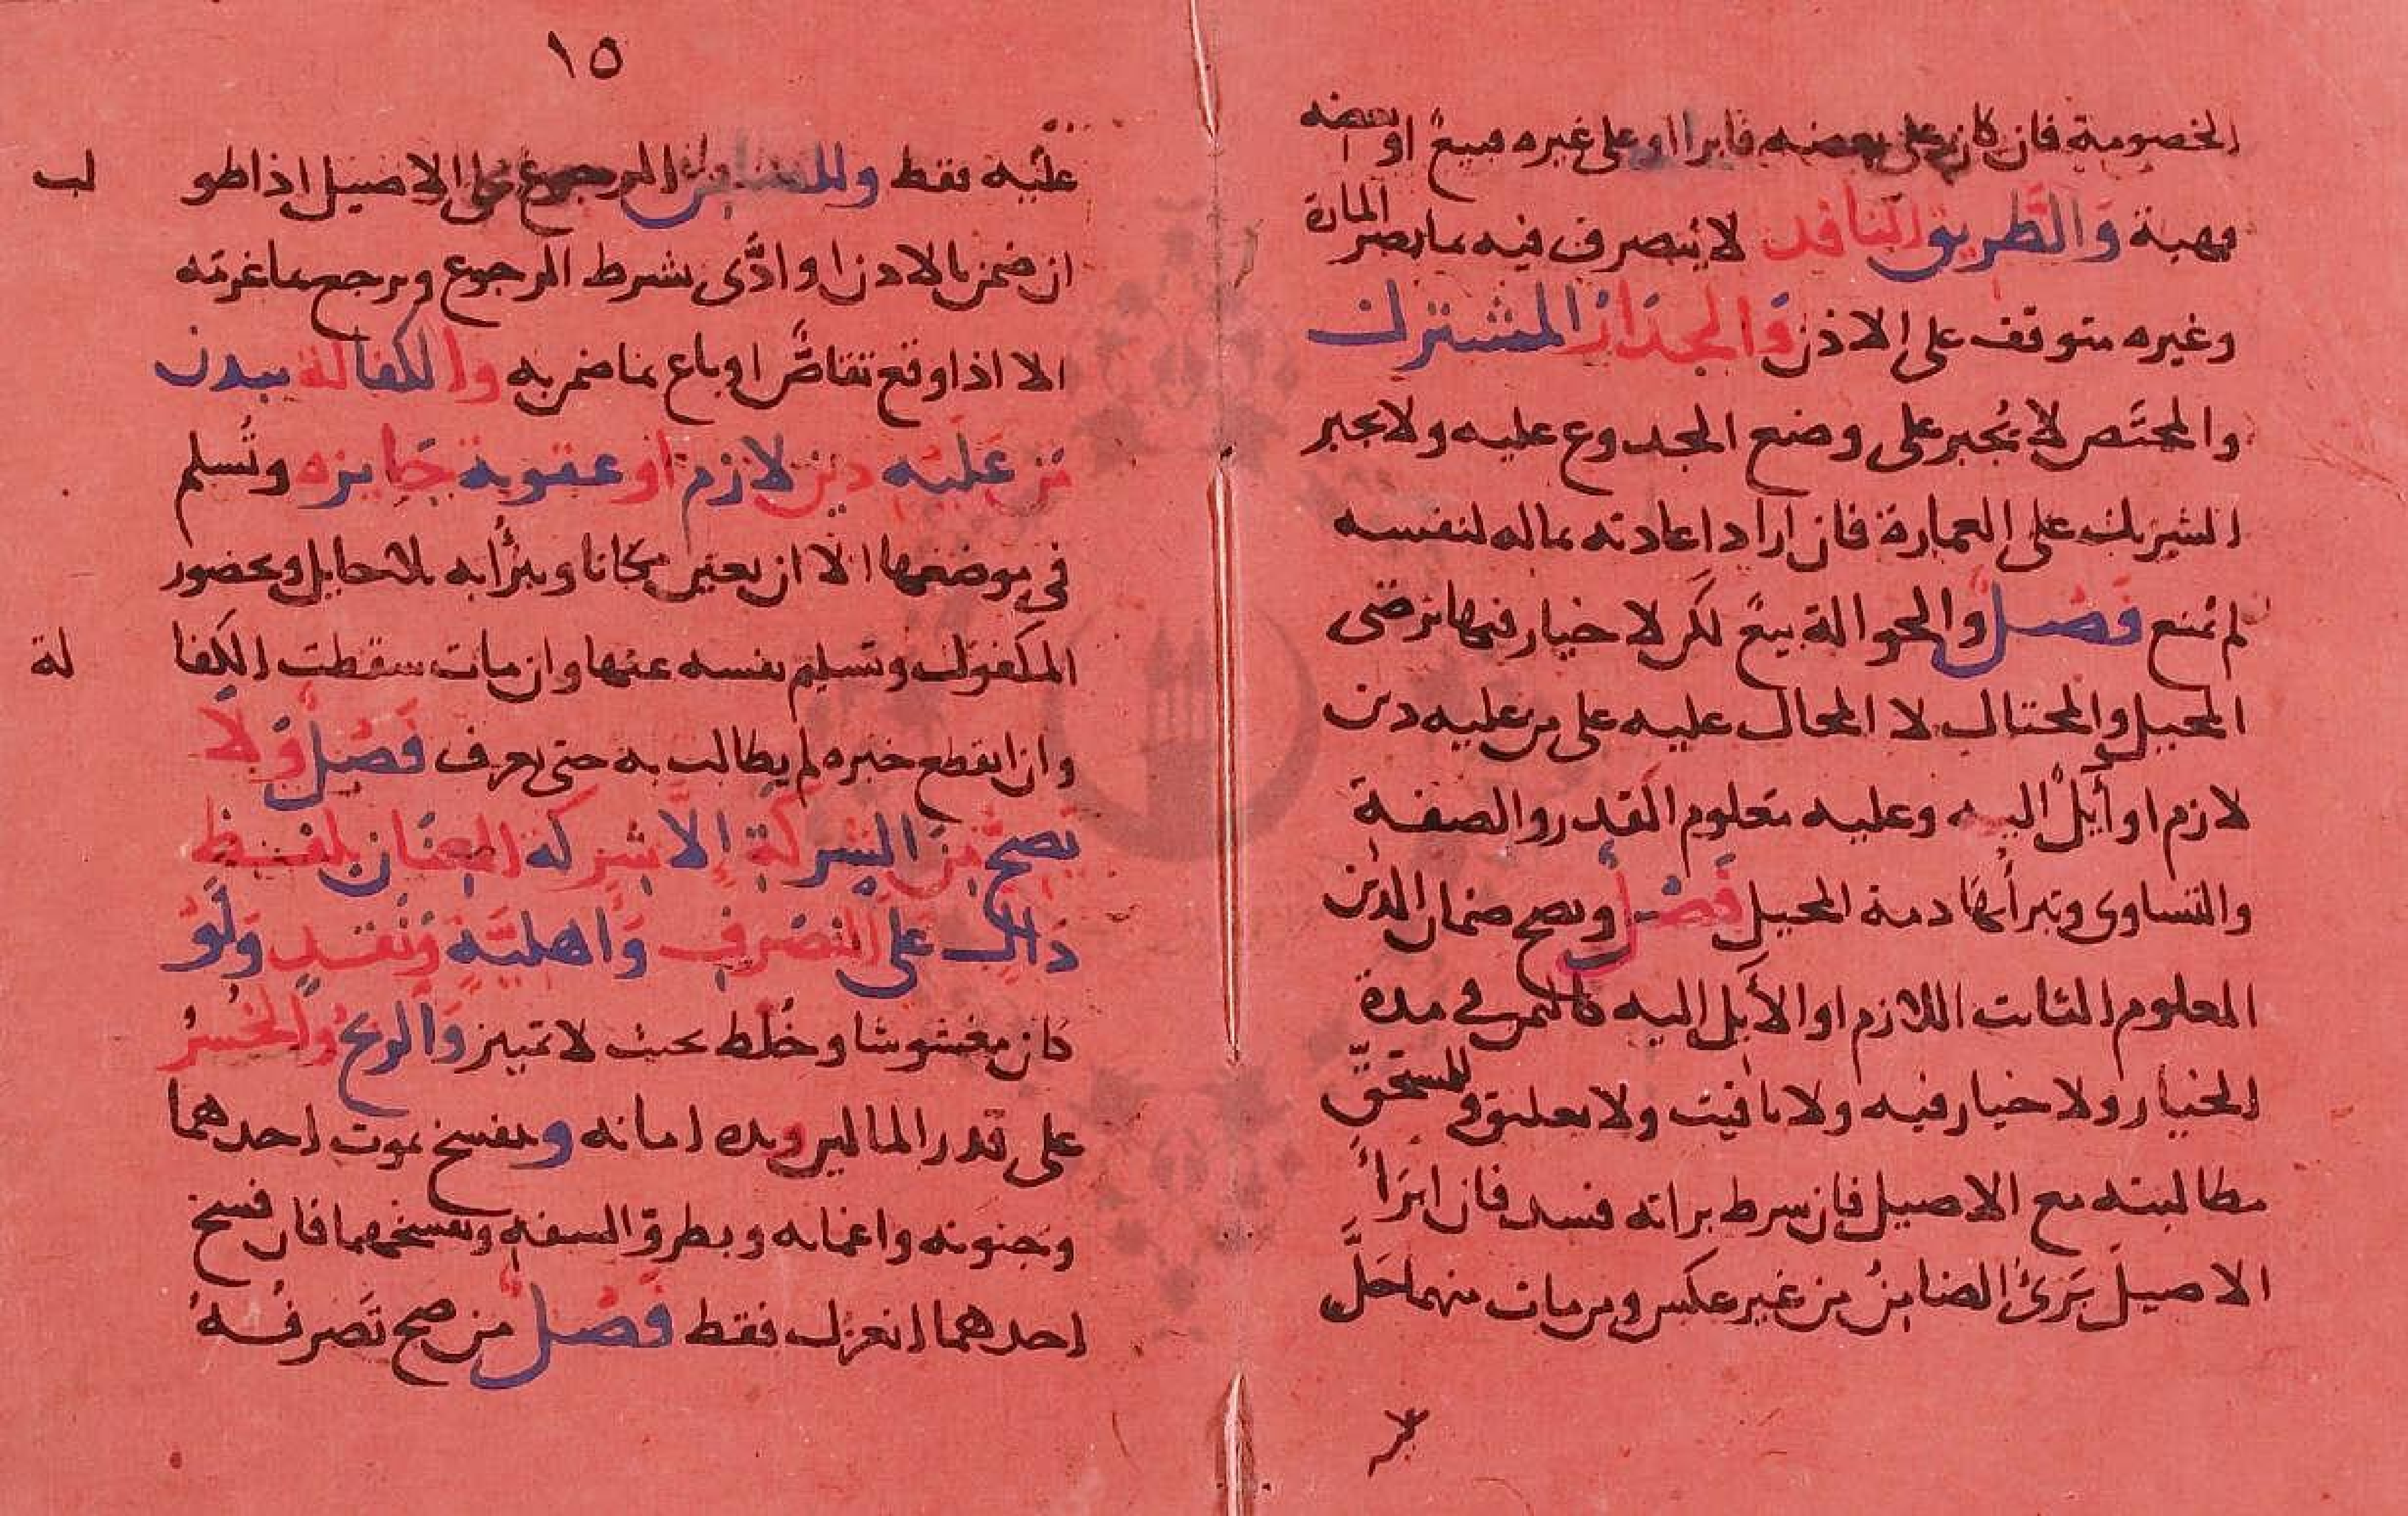 الخصومة فان كان على بعضه فابرا او على غيره فبيع او بعضه
فهبة والطريق النافد لا يتصرف فيه بما يضر المارة
وغيره متوقف على الاذن والجدار المشترك
والمختص لا يجبر على وضع الجدوع عليه ولا يجبر
الشريك على العمارة فان اراد اعادته بماله لنفسه
لم يمنع فصل والحوالة بيع لكن لا خيار فيها برضى
المحيل والمحتال لا المحال عليه على من عليه دين
لازم او آيل اليه وعليه معلوم القدر والصفة
والتساوى وتبرأ بها دمة المحيل فصل ويصح ضمان الدين
المعلوم الثابت اللازم او الآيل اليه كالثمن في مدة
الخيار ولا خيار فيه ولا تاقيت ولا تعليق وللمستحق
مطالبته مع الاصيل فان شرط براته فسد فان ابرأ
الاصيل برئ الضامن من غير عكس ومن مات منهما حل
١٥
عليه فقط وللضامن الرجوع على الاصيل اذا طو لب
ان ضمن بالاذن او ادى بشرط الرجوع ويرجع بما غرمه
الا اذا وقع تقاص او باع بما ضمن به والكفالة ببدن
من عليه دين لازم او عقوبة جايزه وتسلم
في موضعها الا ان يعين مكانا ويبرأ به بلا حايل وبحضور
المكفول وتسليم نفسه عنها وان مات سقطت الكفا لة
وان انقطع خبره لم يطالب به حتى يعرف فصل ولا
تصح من الشركة إلا شركة العنان بلفظ
دال على التصرف واهلية ونقد ولو
كان مغشوشا وخلط بحيث لا تمييز والربح والخسر
على قدر المالين ويده امانه وتنفسخ بموت احدهما
وجنونه واغمائه وبطرو السفه وبفسخهما فان فسخ
احدهما انعزل فقط فصل من صح تصرفه